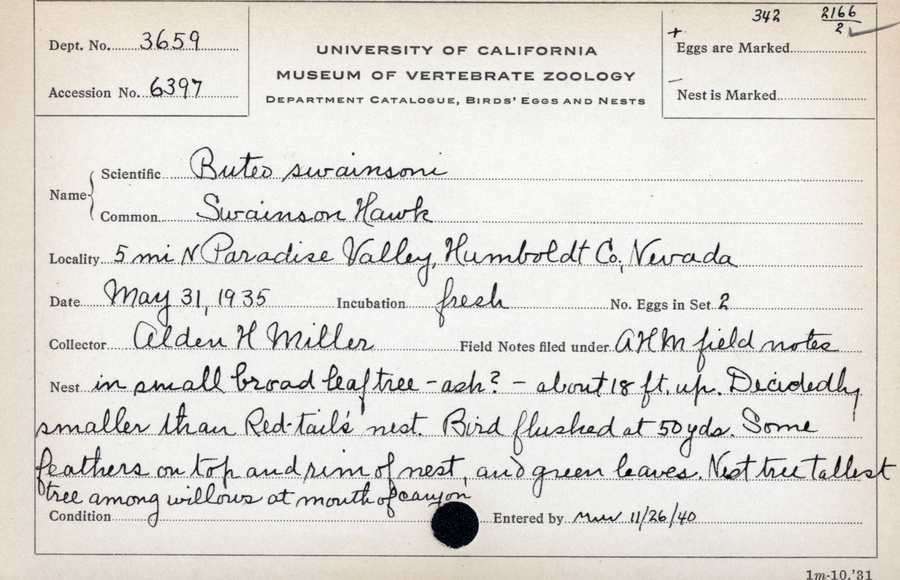 342 2166/2 ✓
Dept. No. 3659
UNIVERSITY OF CALIFORNIA
+
Eggs are Marked
MUSEUM OF VERTEBRATE ZOOLOGY
Accession No. 6397
DEPARTMENT CATALOGUE, BIRDS' EGGS AND NESTS
—
Nest is Marked
Name { Scientific Buteo swainsoni
Common Swainson Hawk
Locality 5 mi N Paradise Valley, Humboldt Co., Nevada
Date May 31, 1935 Incubation fresh No. Eggs in Set 2
Collector Alden H Miller Field Notes filed under AHM field notes
Nest in small broad leaf tree - ash? - about 18 ft. up. Decidedly
smaller than Red-tail's nest. Bird flushed at 50 yds. Some
feathers on top and rim of nest, and green leaves. Nest tree tallest
tree among willows at mouth of canyon
Condition Entered by 11/26/40
1m-10,'31